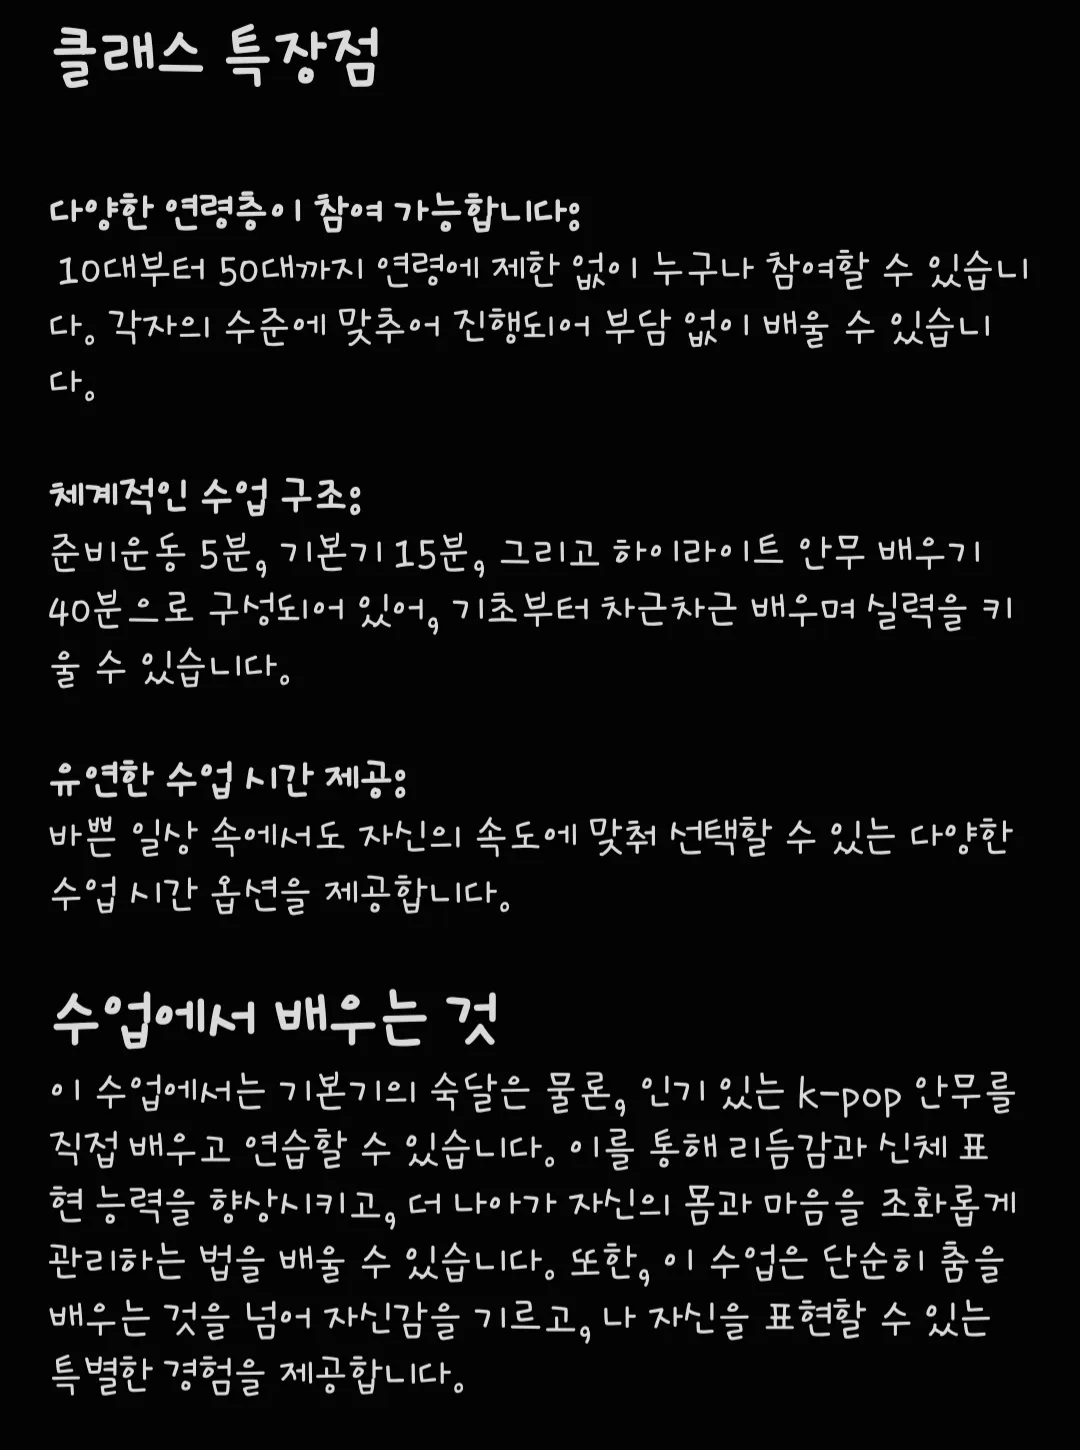 클래스 특장점
다양한 연령층이 참여 가능합니다:
10대부터 50대까지 연령에 제한 없이 누구나 참여할 수 있습니
다. 각자의 수준에 맞추어 진행되어 부담 없이 배울 수 있습니
다.
체계적인 수업 구조:
준비운동 5분, 기본기 15분, 그리고 하이라이트 안무 배우기
40분으로 구성되어 있어, 기초부터 차근차근 배우며 실력을 키
울 수 있습니다.
유연한 수업 시간 제공:
바쁜 일상 속에서도 자신의 속도에 맞춰 선택할 수 있는 다양한
수업 시간 옵션을 제공합니다.
수업에서 배우는 것
이 수업에서는 기본기의 숙달은 물론, 인기 있는 k-pop 안무를
직접 배우고 연습할 수 있습니다. 이를 통해 리듬감과 신체 표
현 능력을 향상시키고, 더 나아가 자신의 몸과 마음을 조화롭게
관리하는 법을 배울 수 있습니다. 또한, 이 수업은 단순히 춤을
배우는 것을 넘어 자신감을 기르고, 나 자신을 표현할 수 있는
특별한 경험을 제공합니다.